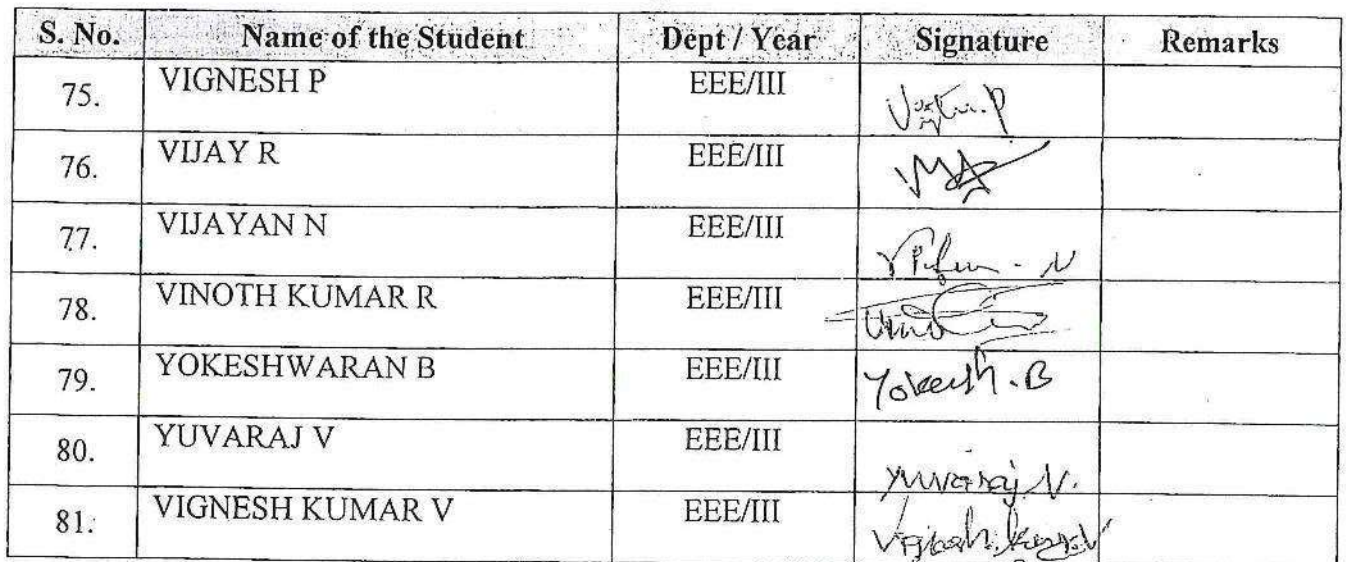 S. No. Name of the Student Dept / Year Signature Remarks
75. VIGNESH P EEE/III
76. VIJAY R EEE/III
77. VIJAYAN N EEE/III
78. VINOTH KUMAR R EEE/III
79. YOKESHWARAN B EEE/III Yokesh . B
80. YUVARAJ V EEE/III Yuvaraj V.
81. VIGNESH KUMAR V EEE/III